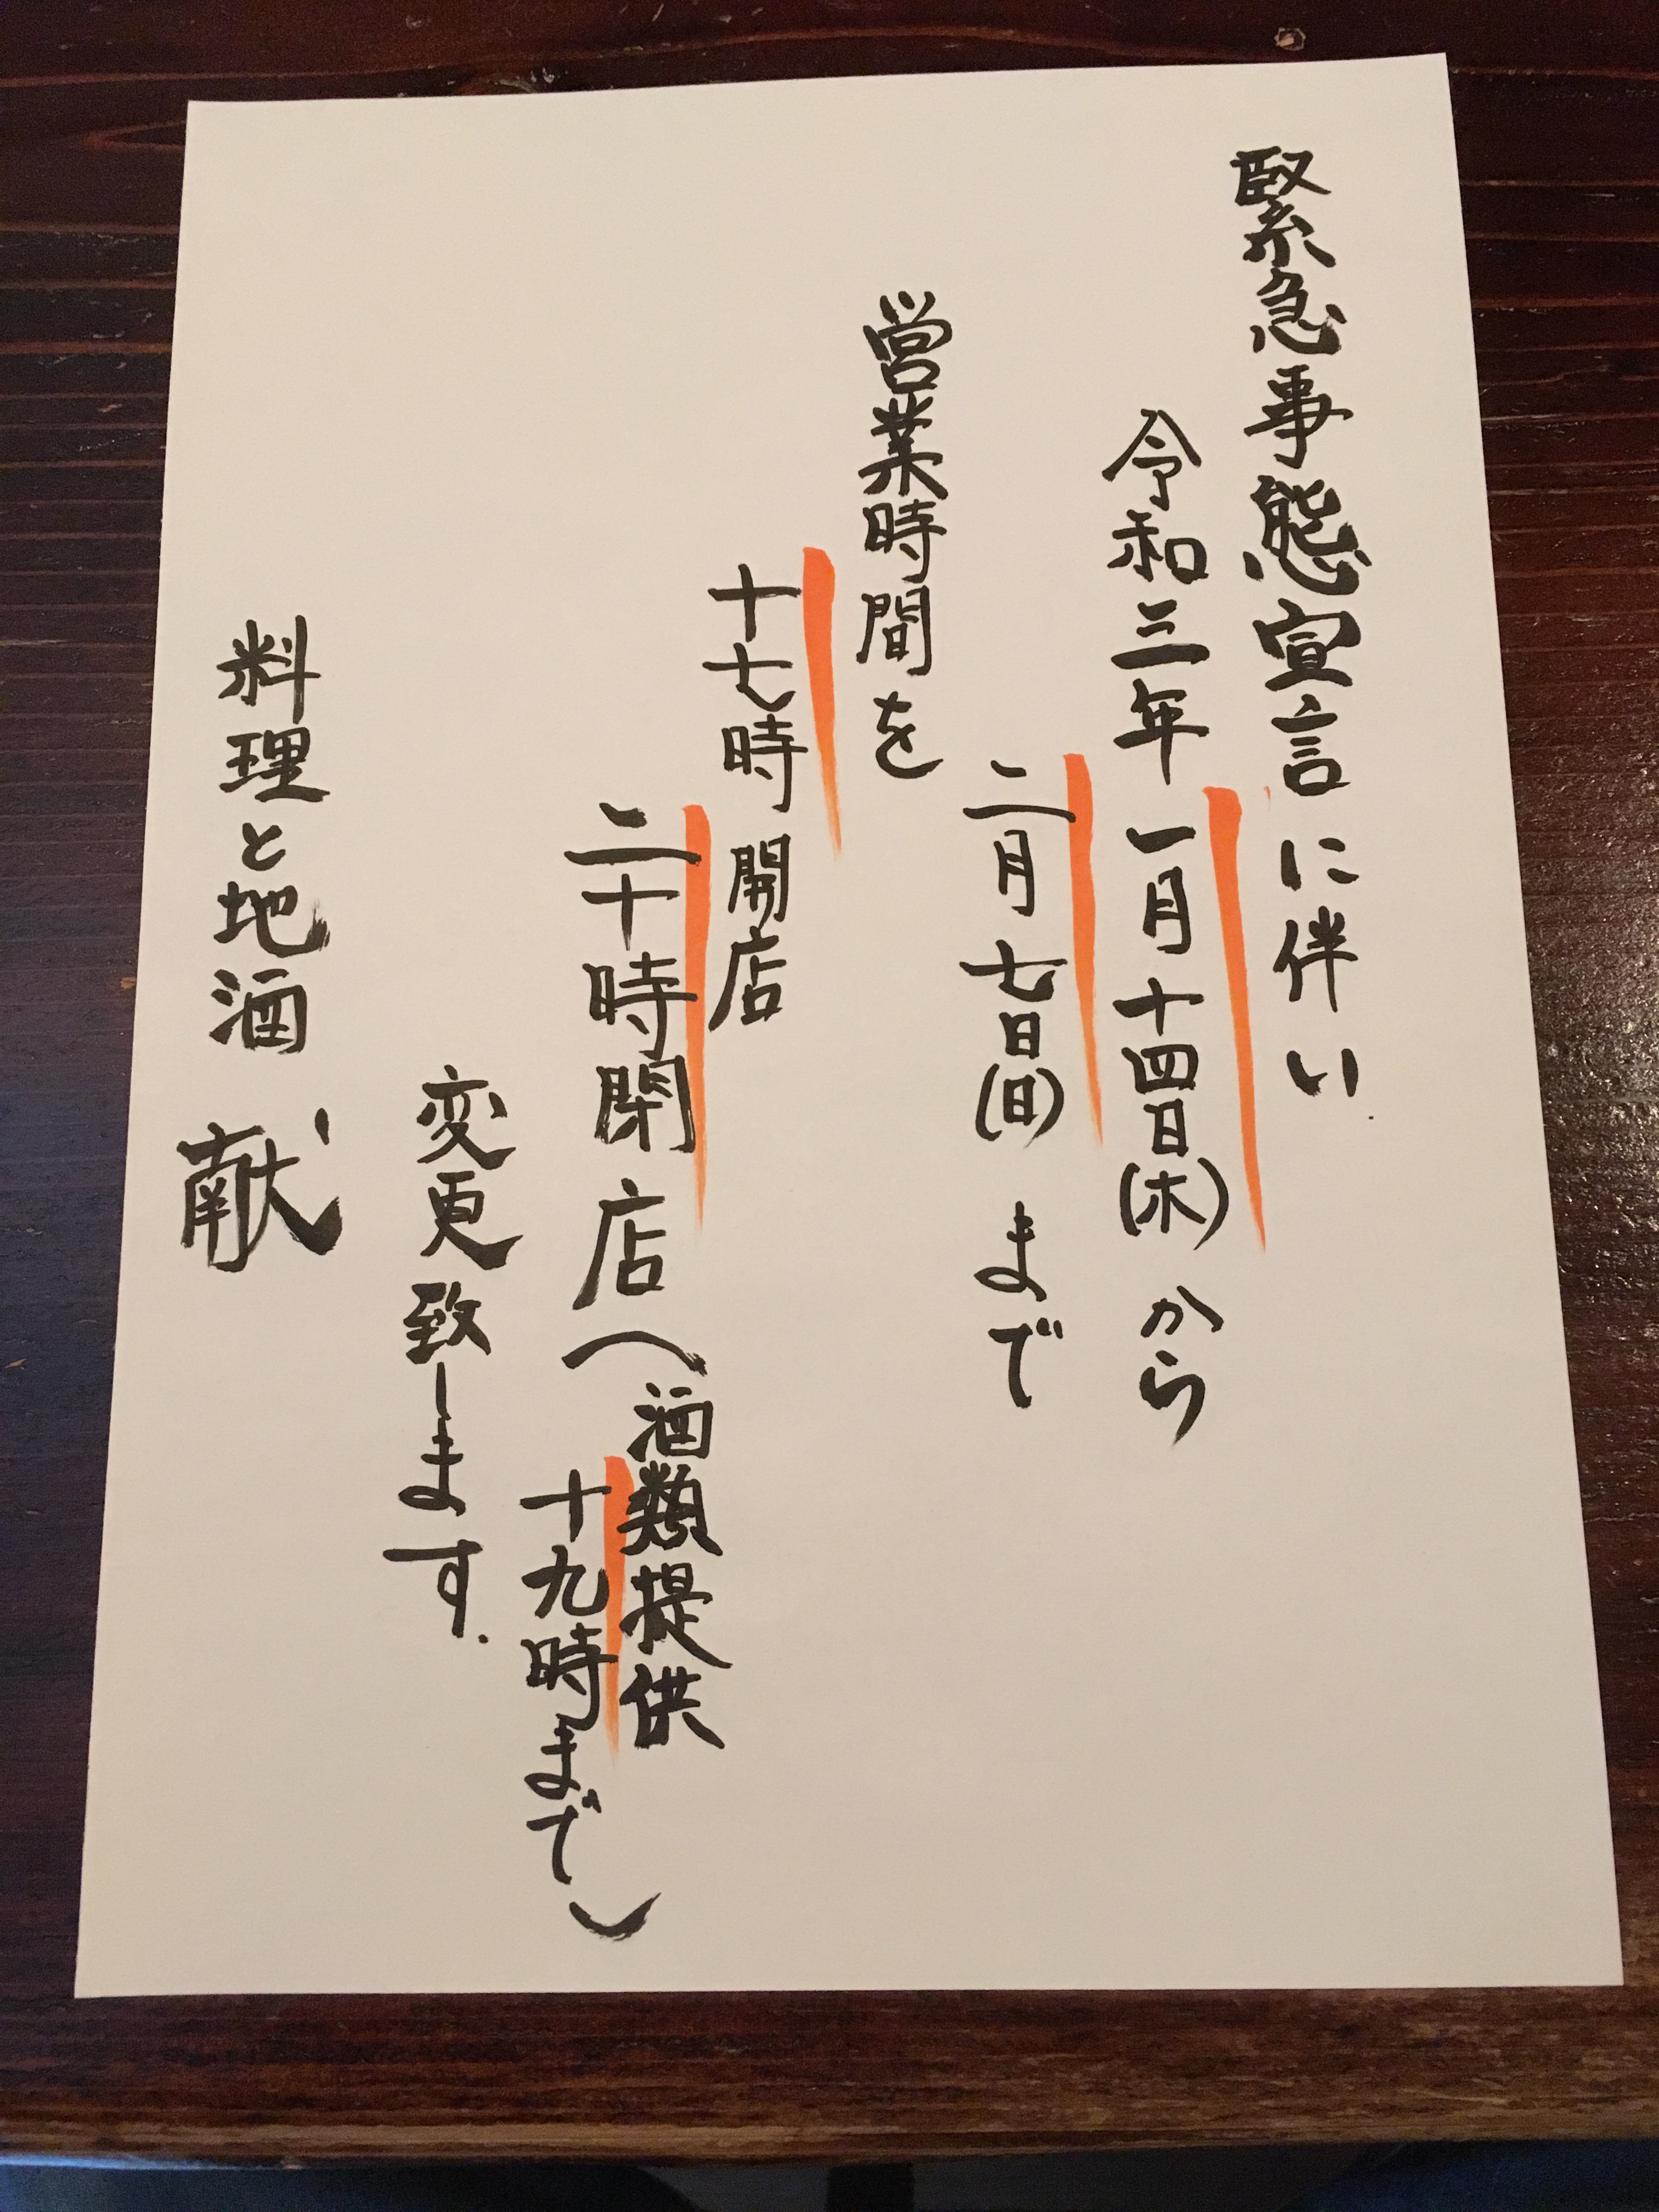 緊急事態宣言に伴い
令和三年一月十四日(木)から
二月七日(日)まで
営業時間を
十七時開店
二十時閉店(酒類提供
十九時まで)
変更致します.
料理と地酒 献